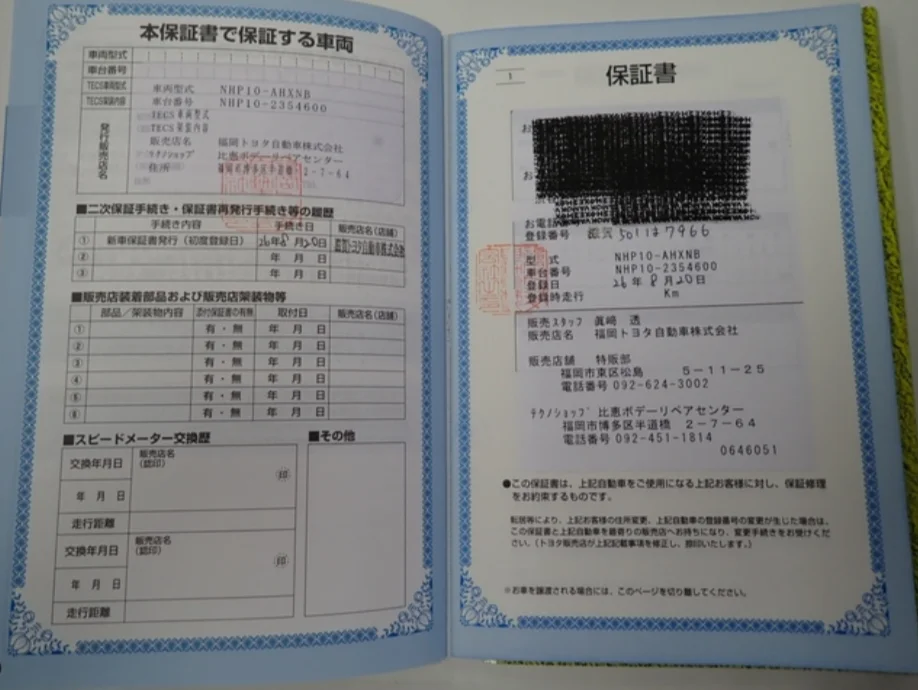 本保証書で保証する車両
車両型式
車台番号
TECS車両型式
TECS架装内容
車両型式 NHP10-AHXNB
車台番号 NHP10-2354600
TECS車両型式
TECS架装内容
発行販売店名
販売店名 福岡トヨタ自動車株式会社
テクノショップ 比恵ボデーリペアセンター
住所 福岡市博多区半道橋2-7-64
■二次保証手続き・保証書再発行手続き等の履歴
手続き内容 手続き日 販売店名(店舗)
① 新車保証書発行(初度登録日) 26年8月20日 トヨタ自動車株式会社
② 年 月 日
③ 年 月 日
■販売店装着部品および販売店架装物等
部品/架装物内容 添付保証書の有無 取付日 販売店名(店舗)
① 有・無 年 月 日
② 有・無 年 月 日
③ 有・無 年 月 日
④ 有・無 年 月 日
⑤ 有・無 年 月 日
⑥ 有・無 年 月 日
■スピードメーター交換歴
交換年月日 販売店名(認印)
年 月 日 印
走行距離
交換年月日 販売店名(認印)
年 月 日 印
走行距離
■その他
1
保証書
お電話
登録番号 501 は 7966
型式 NHP10-AHXNB
車台番号 NHP10-2354600
登録日 26年8月20日
登録時走行 Km
販売スタッフ 眞﨑 透
販売店名 福岡トヨタ自動車株式会社
販売店舗 特販部
福岡市東区松島 5-11-25
電話番号 092-624-3002
テクノショップ 比恵ボデーリペアセンター
福岡市博多区半道橋 2-7-64
電話番号 092-451-1814
0646051
●この保証書は、上記自動車をご使用になる上記お客様に対し、保証修理
をお約束するものです。
転居等により、上記お客様の住所変更、上記自動車の登録番号の変更が生じた場合は、
この保証書と上記自動車を最寄りの販売店へお持ちになり、変更手続きをお受けくだ
さい。(トヨタ販売店が上記記載事項を修正し、捺印いたします。)
※お車を譲渡される場合には、このページを切り離してください。